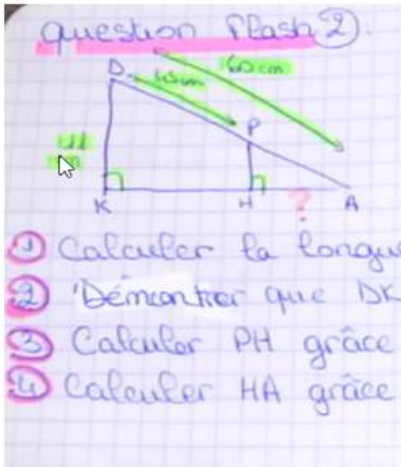 question flash ②.
60 cm
45 cm
D
P
K
H
?
A
① Calculer la longu
② Démontrer que DK
③ Calculer PH grâce
④ Calculer HA grâce